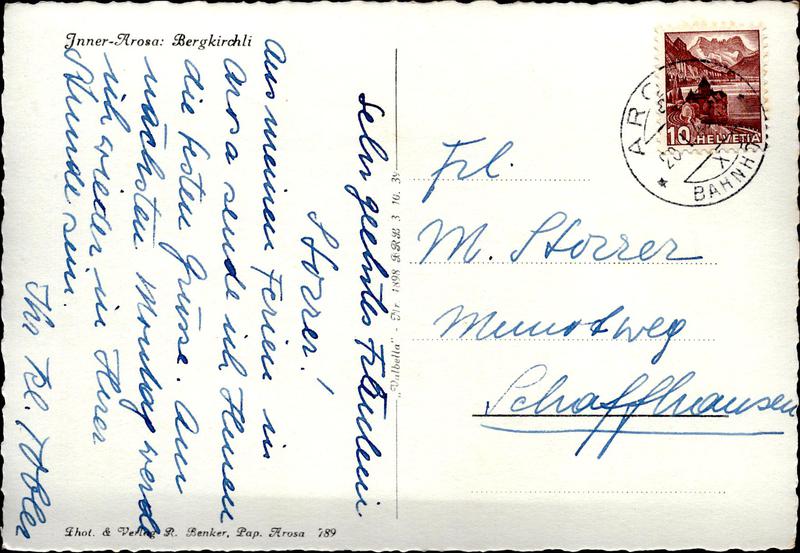 Jnner-Arosa: Bergkirchli
Sehr geehrtes Fräulein
Storrer!
Aus meinen Ferien in
Arosa sende ich Ihnen
die besten Grüsse. Am
nächsten Montag werde
ich wieder in Ihrer
Stunde sein.
Ihr Kl.
"Valbella" - Nr. 1898 3. 10. 39
Phot. & Verlag R. Benker, Pap. Arosa 789
HELVETIA
10
BAHNHOF
Frl.
M. Storrer
Munotweg
Schaffhausen